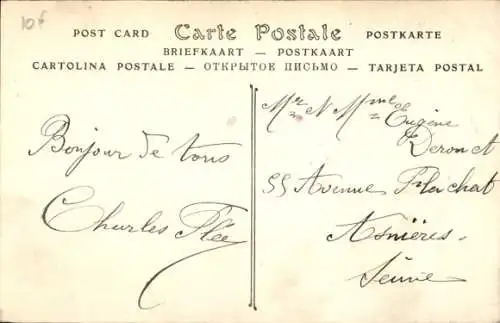 10f
POST CARD Carte Postale POSTKARTE
BRIEFKAART — POSTKAART
CARTOLINA POSTALE — ОТКРЫТОЕ ПИСЬМО — TARJETA POSTAL
Bonjour de tous
Charles Flée
Mr & Mme Eugène
Deronet
55 Avenue Flachat
Asnières.
Seine